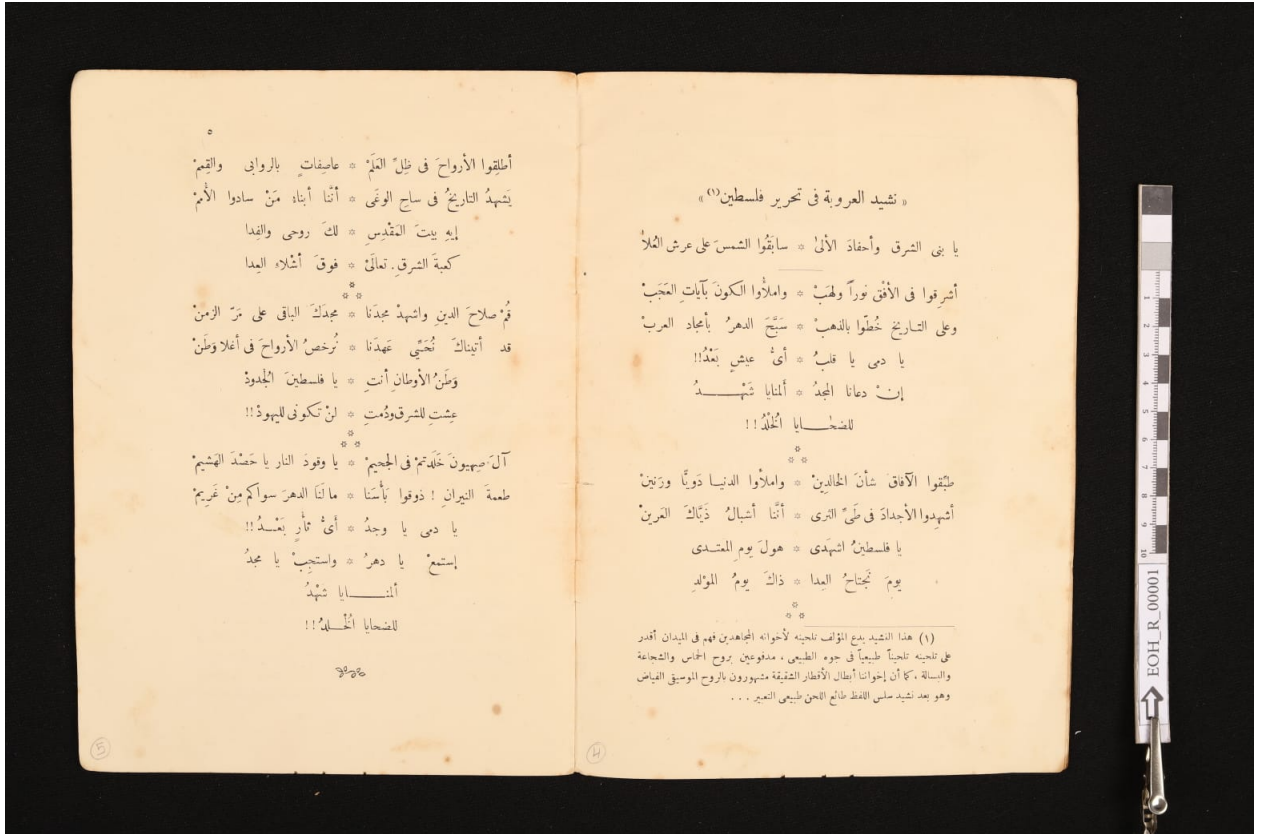 « نشيد العروبة فى تحرير فلسطين(١) »
يا بنى الشرق وأحفادَ الألىٰ * سابَقُوا الشمسَ على عرش العُلاْ
أشرِقوا فى الأفْق نوراً ولهَبْ * واملأوا الكونَ بآيَات العَجَبْ
وعلى التاريخ خُطّوا بالذهبْ * سَبَّحَ الدهرُ بأمجاد العربْ
يا دمى يا قلبُ * أىُّ عيشٍ بَعْدُ!!
إنْ دعانا المجدُ * ألمنايا شَهْدُ
للضحايا الخُلْدُ!!
طبِّقوا الآفاقَ شأنَ الخالدِينْ * واملأوا الدنيا دَوِيًّا ورَنينْ
أشهِدوا الأجدادَ فى طَىِّ الثرى * أنَّنا أشبالُ ذَيَّاكَ العَرينْ
يا فلسطينُ اشهَدى * هولَ يومِ المعتدى
يومَ نَجتاحُ العِدا * ذاكَ يومُ المولدِ
(١) هذا النشيد يدع المؤلف تلحينه لأخوانه المجاهدين فهم فى الميدان أقدر
على تلحينه تلحيناً طبيعياً فى جوه الطبيعى ، مدفوعين بروح الحماس والشجاعة
والبسالة ، كما أن إخواننا أبطال الأقطار الشقيقة مشهورون بالروح الموسيقى الفياض
وهو بعد نشيد سلس اللفظ طائع اللحن طبيعى التعبير . . .
4
٥
أطلِقوا الأرواحَ فى ظِلِّ العَلَمْ * عاصِفاتٍ بالروابى والقِممْ
يَشهدُ التاريخُ فى ساحِ الوغَى * أنَّنا أبناه مَنْ سادوا الأممْ
إيهِ بيتَ المَقْدِسِ * لكَ روحى والفِدا
كعبةَ الشرقِ. تعالَىْ * فوقَ أشْلاءِ العِدا
قُمْ صلاحَ الدينِ واشهدْ مجدَنا * مجدَكَ الباقى على مَرّ الزمنْ
قد أتيناكَ نُحَيِّى عَهدَنا * نُرخصُ الأرواحَ فى أغلا وَطَنْ
وَطَنُ الأوطانِ أنتِ * يا فلسطينَ الجُدودْ
عِشتِ للشرقِ ودُمتِ * لنْ تكونى لليهودْ!!
آلَ صِهيونَ خَلَدتمْ فى الجحيمْ * يا وقودَ النار يا حَصْدَ الهَشيمْ
طعمةَ النيرانِ ! ذوقوا بَأْسَنا * مالَنا الدهرَ سواكم مِنْ غَرِيمْ
يا دمى يا وجدُ * أىُّ ثأرٍ بَعْدُ!!
إستمعْ يا دهرُ * واستجِبْ يا مجدُ
ألمنايا شَهْدُ
للضحايا الخُلدُ!!
5
1
2
3
4
5
6
7
8
9
10
EOH_R_00001